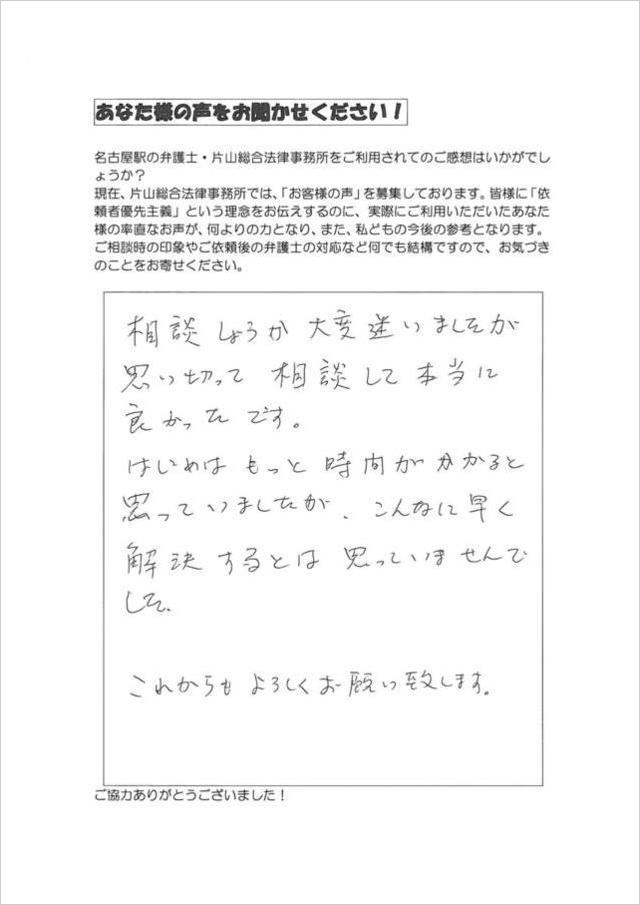 あなた様の声をお聞かせください！
名古屋駅の弁護士・片山総合法律事務所をご利用されてのご感想はいかがでし
ょうか？
現在、片山総合法律事務所では、「お客様の声」を募集しております。皆様に「依
頼者優先主義」という理念をお伝えするのに、実際にご利用いただいたあなた
様の率直なお声が、何よりの力となり、また、私どもの今後の参考となります。
ご相談時の印象やご依頼後の弁護士の対応など何でも結構ですので、お気づき
のことをお寄せください。
相談しようか 大変迷いましたが
思い切って 相談して 本当に
良かった です。
はじめは もっと 時間が かかると
思っていましたが、こんなに早く
解決 するとは 思っていませんで
した。
これからも よろしくお願い致します。
ご協力ありがとうございました！